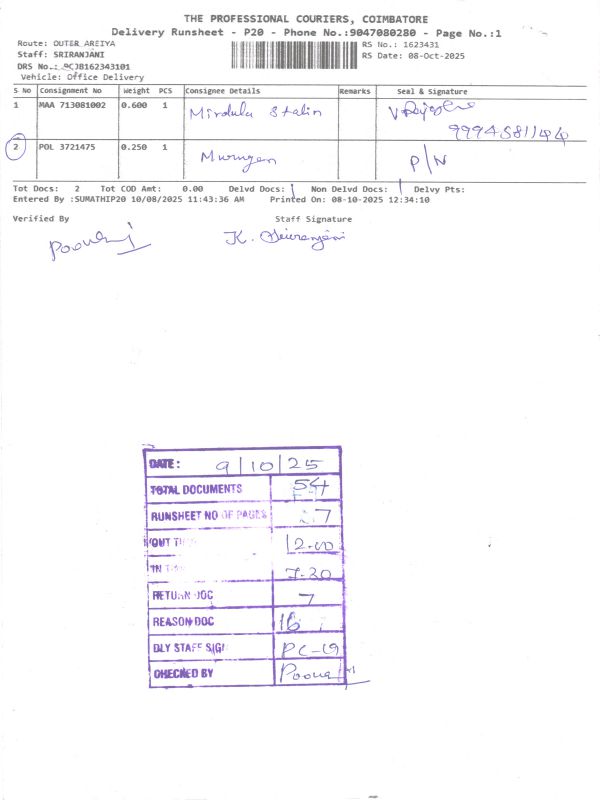 THE PROFESSIONAL COURIERS, COIMBATORE
Delivery Runsheet - P20 - Phone No.:9047080280 - Page No.:1
Route: OUTER AREIYA
RS No.: 1623431
Staff: SRIRANJANI
RS Date: 08-Oct-2025
DRS No.: PCJB162343101
Vehicle: Office Delivery
S No Consignment No Weight PCS Consignee Details Remarks Seal & Signature
1 MAA 713081002 0.600 1 Mirdula Stalin
9994581144
2 POL 3721475 0.250 1 Murugan P/N
Tot Docs: 2 Tot COD Amt: 0.00 Delvd Docs: 1 Non Delvd Docs: 1 Delvy Pts:
Entered By :SUMATHIP20 10/08/2025 11:43:36 AM Printed On: 08-10-2025 12:34:10
Verified By Staff Signature
K.
DATE: 9/10/25
TOTAL DOCUMENTS 54
RUNSHEET NO OF PAGES 7
OUT 12-00
IN 7-20
RETURN DOC 7
REASON DOC 16
DLY STAFF SIGN PC-19
CHECKED BY